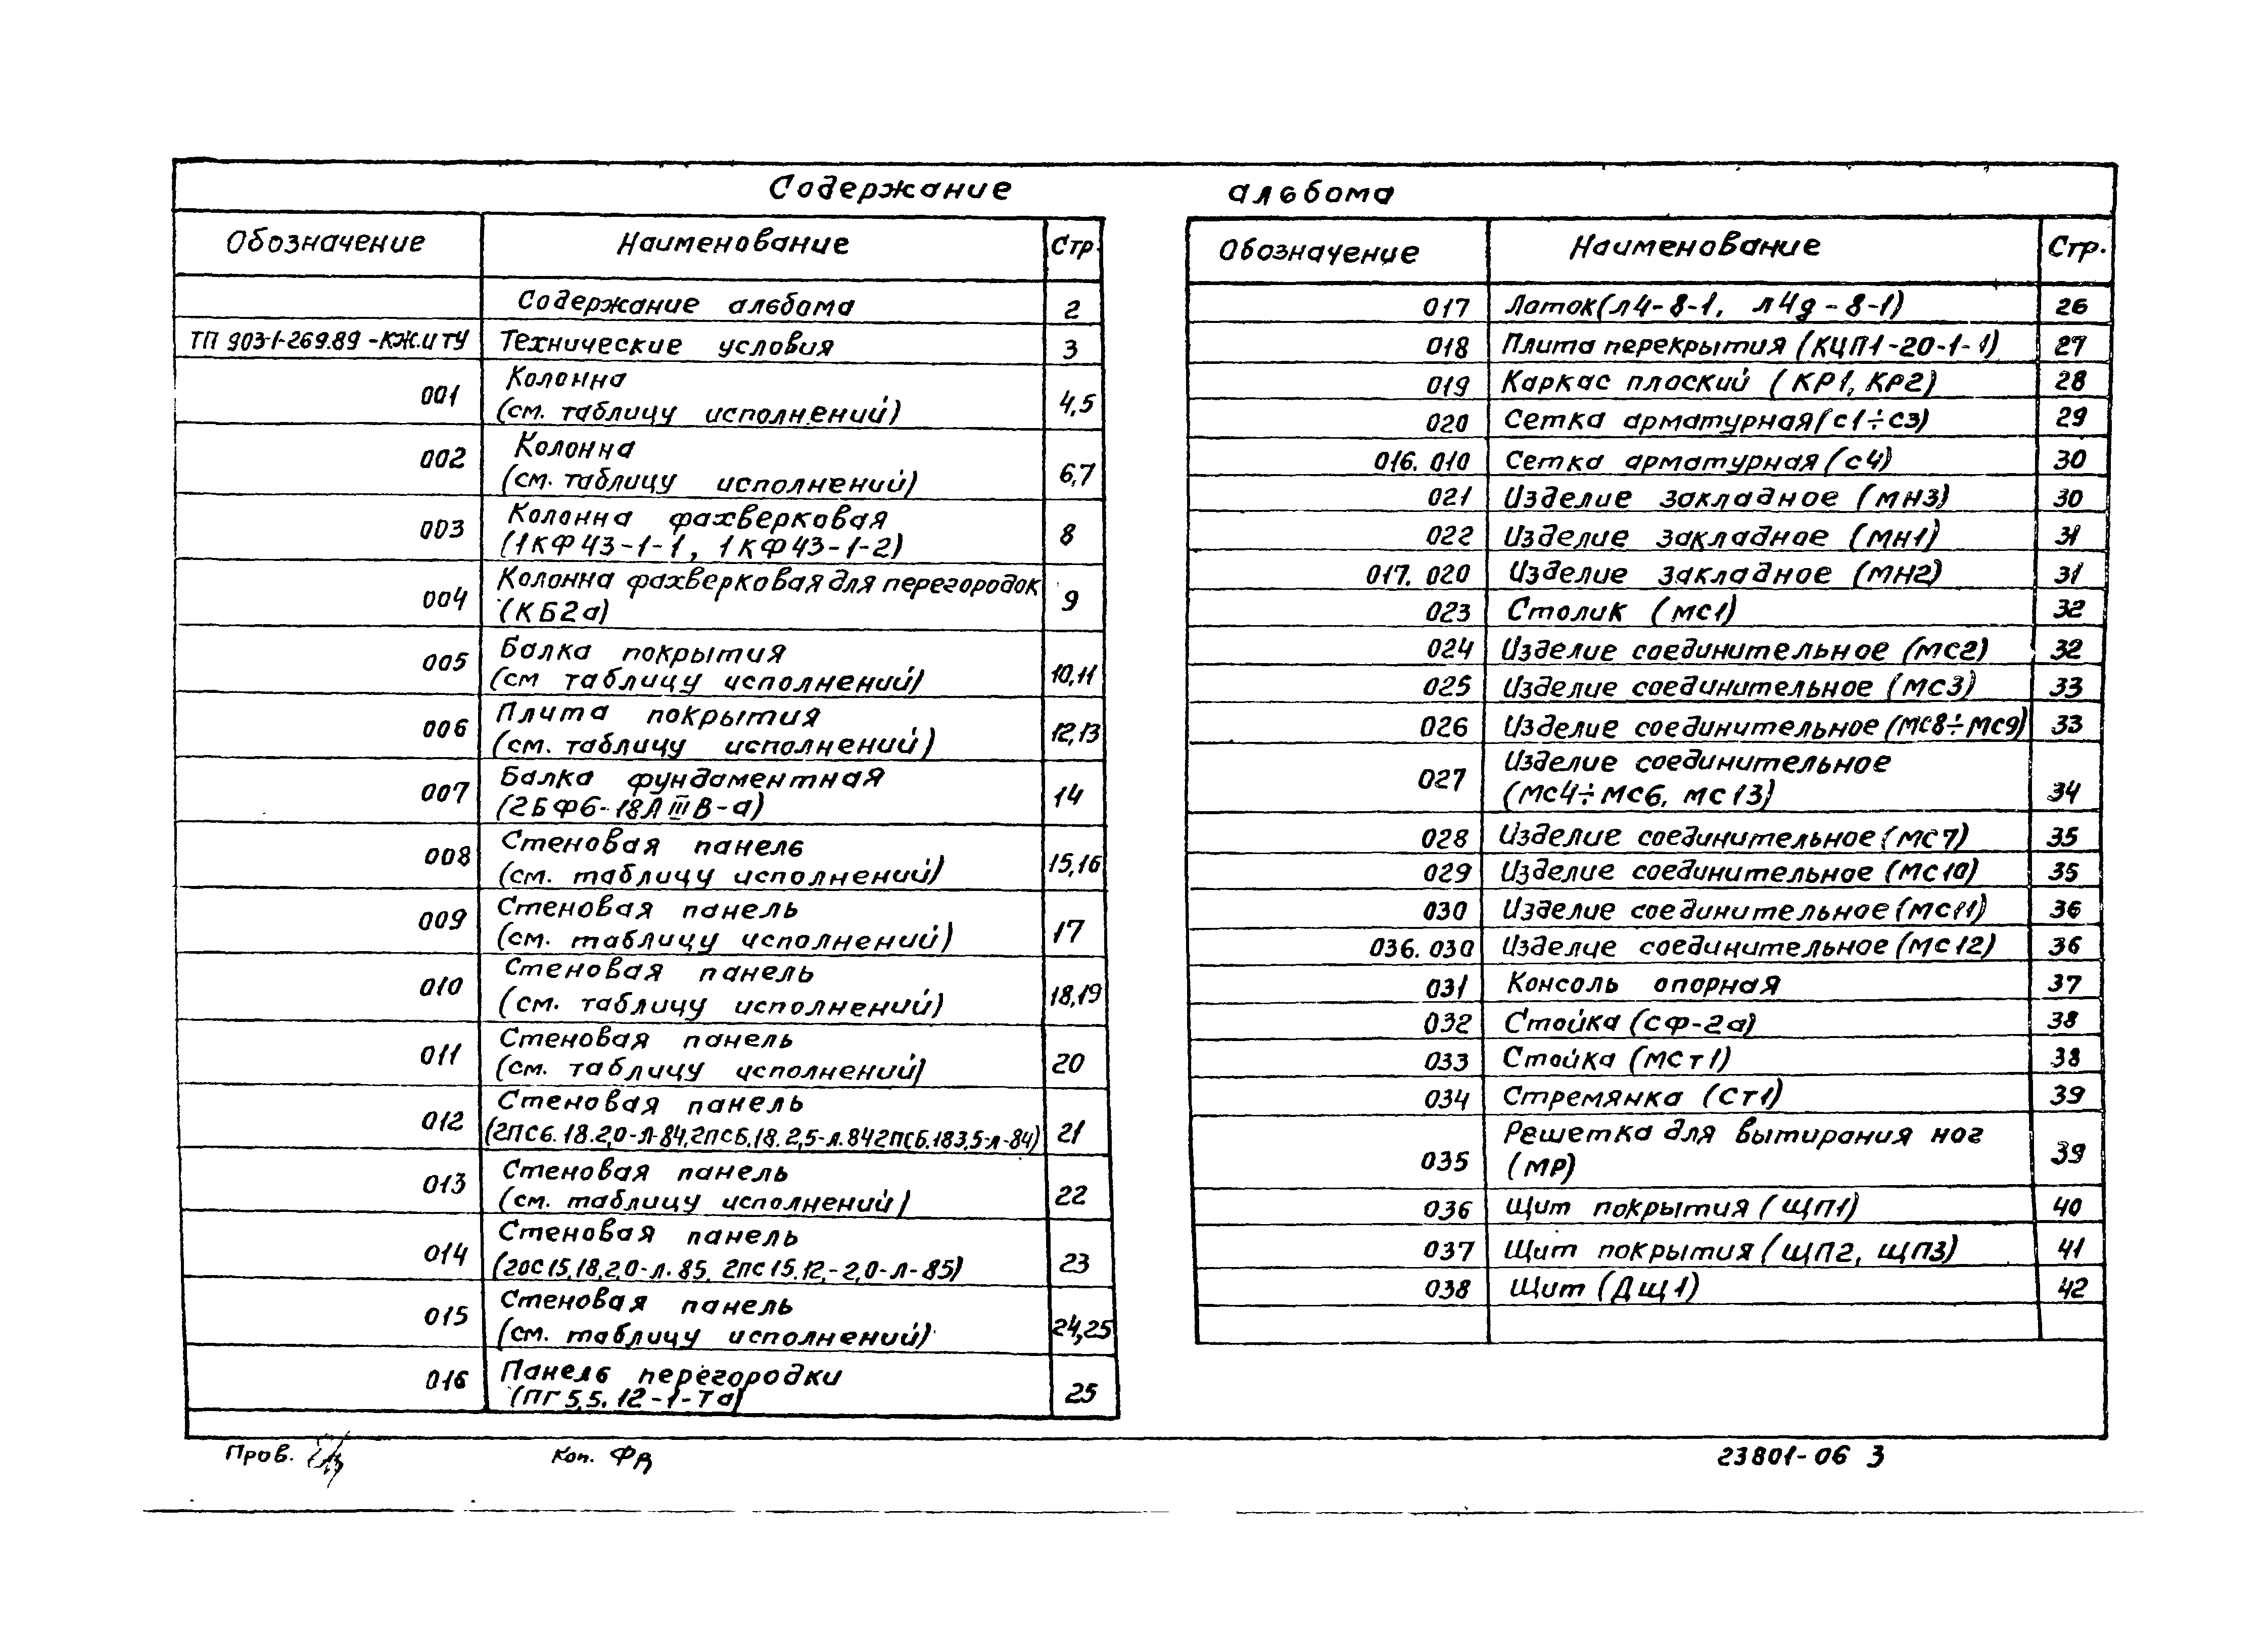 Содержание альбома
Обозначение Наименование Стр.
Содержание альбома 2
ТП 903-1-269.89 -КЖ.И ТУ Технические условия 3
001 Колонна
(см. таблицу исполнений) 4,5
002 Колонна
(см. таблицу исполнений) 6,7
003 Колонна фахверковая
(1КФ43-1-1, 1КФ43-1-2) 8
004 Колонна фахверковая для перегородок
(КБ2а) 9
005 Балка покрытия
(см таблицу исполнений) 10,11
006 Плита покрытия
(см. таблицу исполнений) 12,13
007 Балка фундаментная
(2БФ6-18АIIIВ-а) 14
008 Стеновая панель
(см. таблицу исполнений) 15,16
009 Стеновая панель
(см. таблицу исполнений) 17
010 Стеновая панель
(см. таблицу исполнений) 18,19
011 Стеновая панель
(см. таблицу исполнений) 20
012 Стеновая панель
(2ПС6.18.2,0-Л-84,2ПС6.18.2,5-л.84 2ПС6.18 3,5-л-84) 21
013 Стеновая панель
(см. таблицу исполнений) 22
014 Стеновая панель
(20С15.18.2,0-л.85, 2ПС15.12.-2,0-Л-85) 23
015 Стеновая панель
(см. таблицу исполнений) 24,25
016 Панель перегородки
(ПГ5,5.12-1-Та) 25
Обозначение Наименование Стр.
017 Лоток(л4-8-1, л4д-8-1) 26
018 Плита перекрытия (КЦП1-20-1-1) 27
019 Каркас плоский (КР1, КР2) 28
020 Сетка арматурная(с1÷с3) 29
016.010 Сетка арматурная (с4) 30
021 Изделие закладное (МН3) 30
022 Изделие закладное (МН1) 31
017.020 Изделие закладное (МН2) 31
023 Столик (МС1) 32
024 Изделие соединительное (МС2) 32
025 Изделие соединительное (МС3) 33
026 Изделие соединительное (МС8÷МС9) 33
027 Изделие соединительное
(МС4÷МС6, МС13) 34
028 Изделие соединительное (МС7) 35
029 Изделие соединительное (МС10) 35
030 Изделие соединительное (МС11) 36
036.030 Изделие соединительное (МС12) 36
031 Консоль опорная 37
032 Стойка (СФ-2а) 38
033 Стойка (МСт1) 38
034 Стремянка (Ст1) 39
035 Решетка для вытирания ног
(МР) 39
036 Щит покрытия (ЩП1) 40
037 Щит покрытия (ЩП2, ЩП3) 41
038 Щит (ДЩ1) 42
Пров. Коп. 23801-06 3